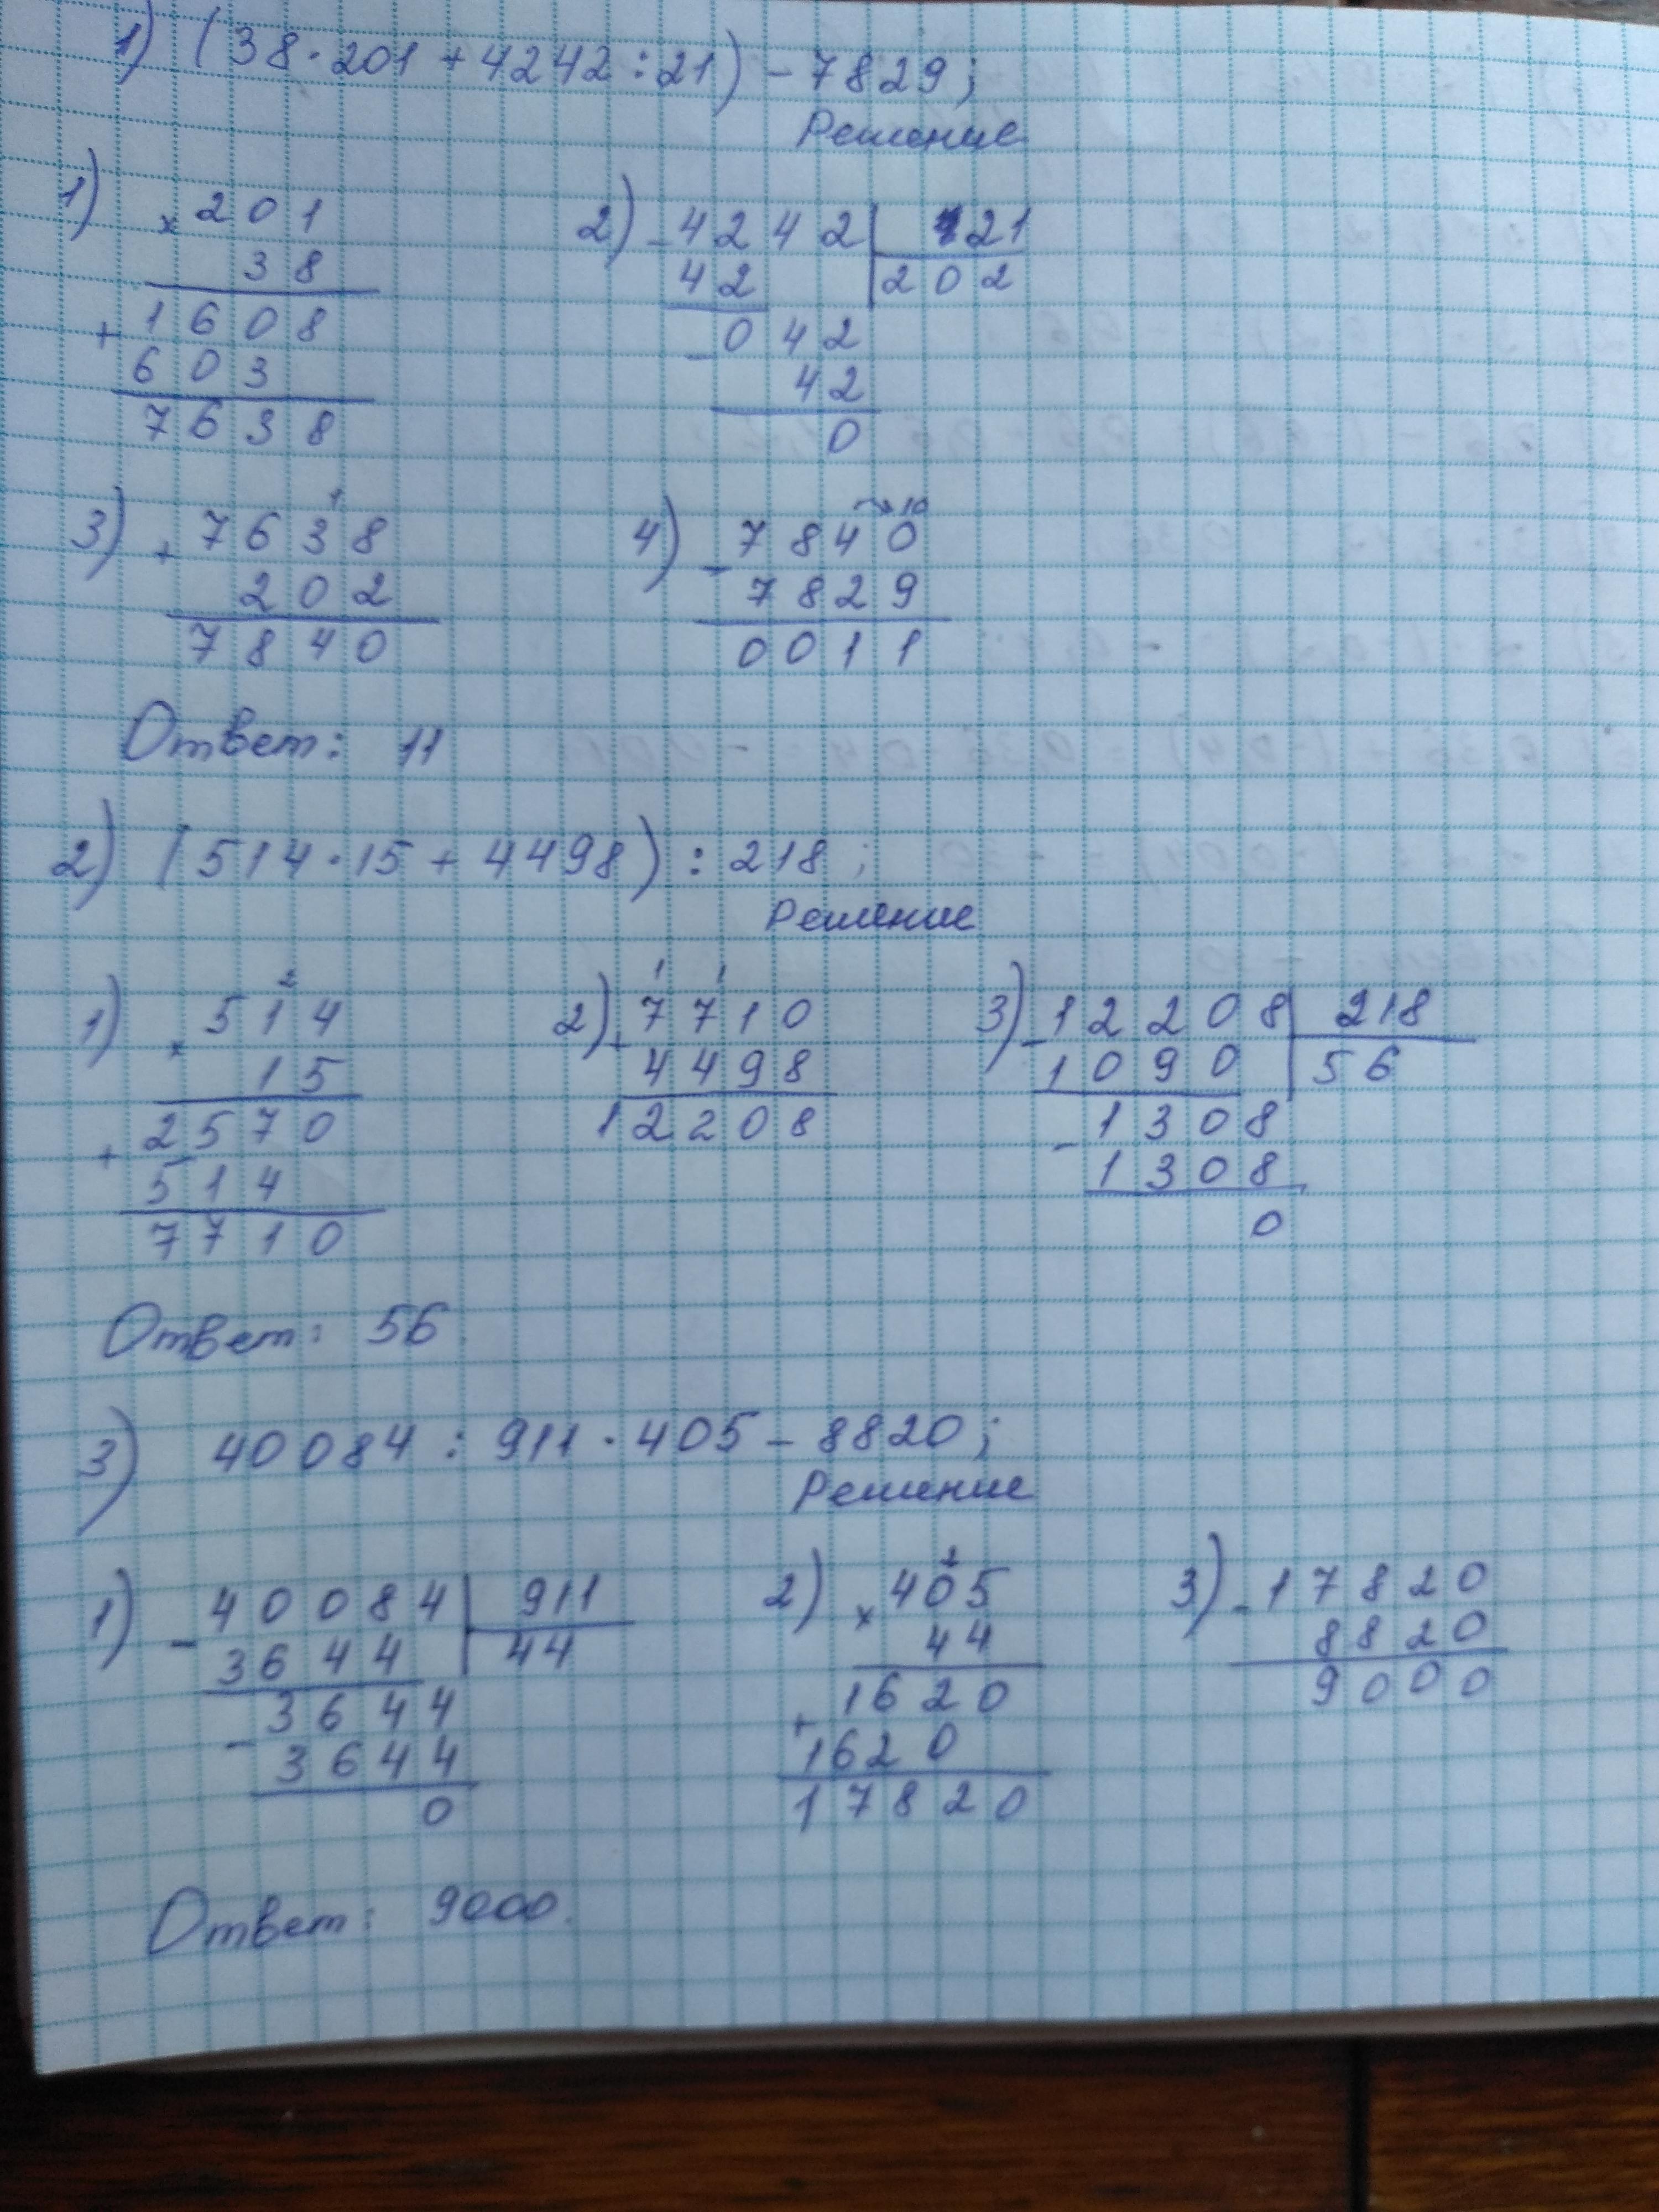 1) (38·201+4242:21)-7829;
Решение
1) ×201
38
+1608
603
7638
2) -4242 | 21
42 | 202
-042
42
0
3) +7638
202
7840
4) -7840
7829
0011
Ответ: 11
2) (514·15+4498):218;
Решение
1) ×514
15
+2570
514
7710
2) +7710
4498
12208
3) -12208 | 218
1090 | 56
-1308
1308
0
Ответ: 56.
3) 40084:911·405-8820;
Решение
1) -40084 | 911
3644 | 44
-3644
3644
0
2) ×405
44
+1620
1620
17820
3) -17820
8820
9000
Ответ: 9000.